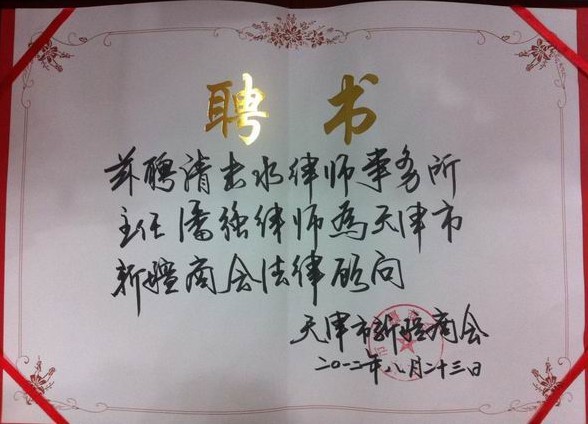 聘书
兹聘清击水律师事务所
主任潘强律师為天津市
新疆商会法律顾问
天津市新疆商会
二〇一二年八月二十三日